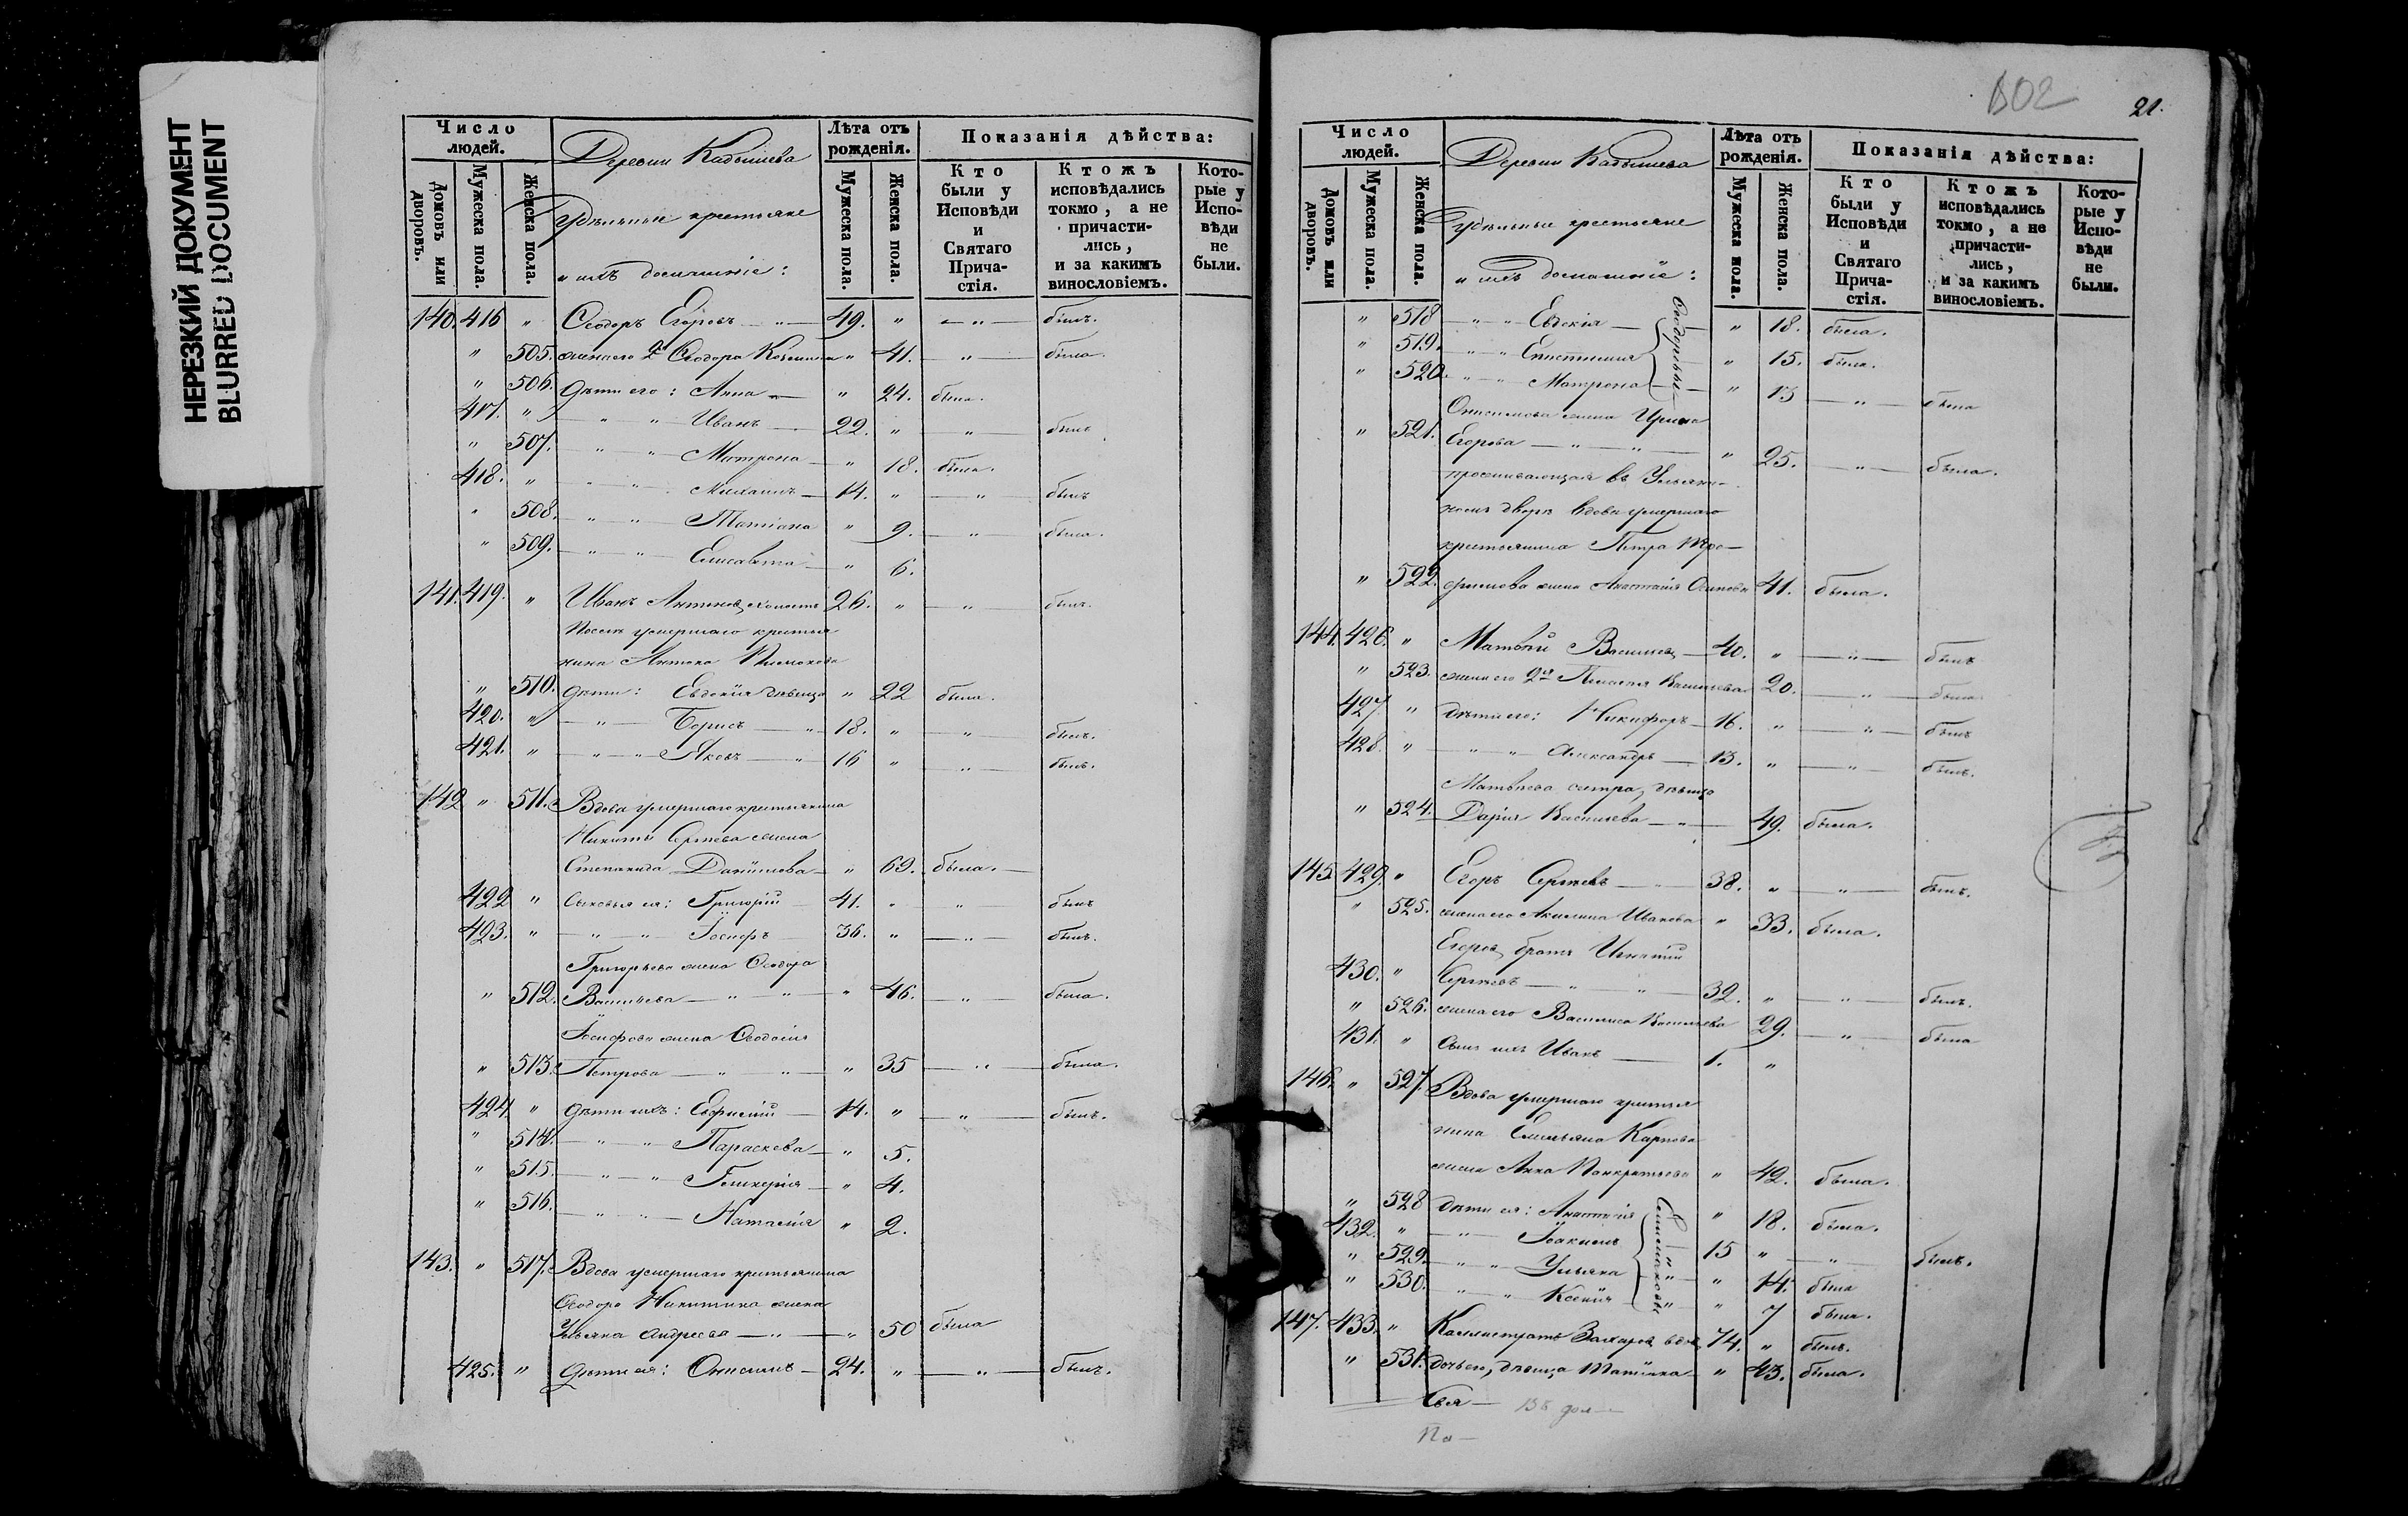 НЕРЕЗКИЙ ДОКУМЕНТ
BLURRED DOCUMENT
Число людей.
Домовъ или дворовъ.
Мужеска пола.
Женска пола.
Деревни Кадышева
Удѣльные крестьяне
и ихъ домашніе:
Лѣта отъ рожденія.
Мужеска пола.
Женска пола.
Показанія дѣйства:
Кто были у Исповѣди и Святаго Причастія.
Ктожъ исповѣдались токмо, а не причастились, и за какимъ винословіемъ.
Которые у Исповѣди не были.
140. 416 " Ѳеодоръ Егоровъ — " — 49. " — " — былъ.
" 505. жена его 2я Ѳеодора Козмина " 41. — " — была.
" 506. Дѣти его: Анна — " 24. была.
417. " — " — " — Иванъ — 22. " — " — былъ
" 507. — " — " — Матрона — " 18. была.
418. " — " — " — Михаилъ — 14. " — " — былъ
" 508. — " — " — Татіана " 9. — " — была.
" 509. — " — " — Елисавета — " 6.
141. 419. " Иванъ Антоновъ, холостъ 26. " — " — былъ.
Послѣ умершаго крестья
нина Антона
" 510. дѣти: Евдокія дѣвица " 22 была.
420. " — " — Борисъ — " — 18. " — " — былъ.
421. " — " — " — Яковъ — " 16 " — " — былъ.
142 " 511. Вдова умершаго крестьянина
Никиты Сергѣева жена
Степанида Данилова — " 69. была. —
422 " Сыновья ея: Григорій — 41. " — " — былъ
423. " — " — " — Іосифъ — 36. " — " — былъ.
Григорьева жена Ѳеодора
" 512. Васильева — " — " — " 46. — " — была.
Іосифова жена Ѳеодосія
" 513. Петрова — " — " — " 35 — " — была.
424. " Дѣти ихъ: Евфимій — 14. " — " — былъ.
" 514. — " — " — Параскева — " 5.
" 515. — " — " — Гликерія — " 4.
" 516. — " — " — Наталія " 2.
143. " 517. Вдова умершаго крестьянина
Ѳеодора Никитина жена
Ульяна Андреева — " — " 50 была
425. " Дѣти ея: Онисимъ — 24. " — " — былъ.
802
21.
Число людей.
Домовъ или дворовъ.
Мужеска пола.
Женска пола.
Деревни Кадышева
Удѣльные крестьяне
и ихъ домашніе:
Лѣта отъ рожденія.
Мужеска пола.
Женска пола.
Показанія дѣйства:
Кто были у Исповѣди и Святаго Причастія.
Ктожъ исповѣдались токмо, а не причастились, и за какимъ винословіемъ.
Которые у Исповѣди не были.
" 518 — " — " — Евдокія — " 18. была.
" 519. — " — " — Епистимія " 15. была.
" 520. — " — " — Матрона — " 13 — " — была
Ѳеодоровы
Онисимова жена Ирина
" 521. Егорова — " — " — " 25. — " — была.
проживающая въ Ульяни-
номъ дворѣ вдова умершаго
крестьянина Петра Тро-
" 522. фимова жена Анастасія Осипова 41. была.
144. 426. " Матвѣй Васильевъ — 40. " — " — былъ
" 523. жена его 2я Пелагея Васильева 20. — " — была
427. " дѣти его: Никифоръ — 16. " — " — былъ
428. " — " — " — Александръ — 13. " — " — былъ.
Матвѣева сестра, дѣвица
" 524. Дарія Васильева — " — 49. была.
145. 429. " Егоръ Сергѣевъ — " 38. " — " — былъ.
" 525. жена его Акилина Иванова " 33. была.
Егоровъ братъ Игнатій
430. " Сергѣевъ — " — " — 32. " — " — былъ.
" 526. жена его Василиса Васильева 29. — " — была
431. " Сынъ ихъ Иванъ — 1. "
146. " 527. Вдова умершаго крестья
нина Емельяна Карпова
жена Анна Панкратьева " 42. была.
" 528 дѣти ея: Анастасія " 18. была.
432. " — " — Іоакимъ 15 " — " — былъ.
" 529. — " — " — Ульяна — " — " 14. была
" 530. — " — " — Ксенія — " — " 7 была.
147. 433. " Каллистратъ Захаровъ, вдов. 74. " былъ.
" 531. дочь его, дѣвица Татіана — " 43. была.